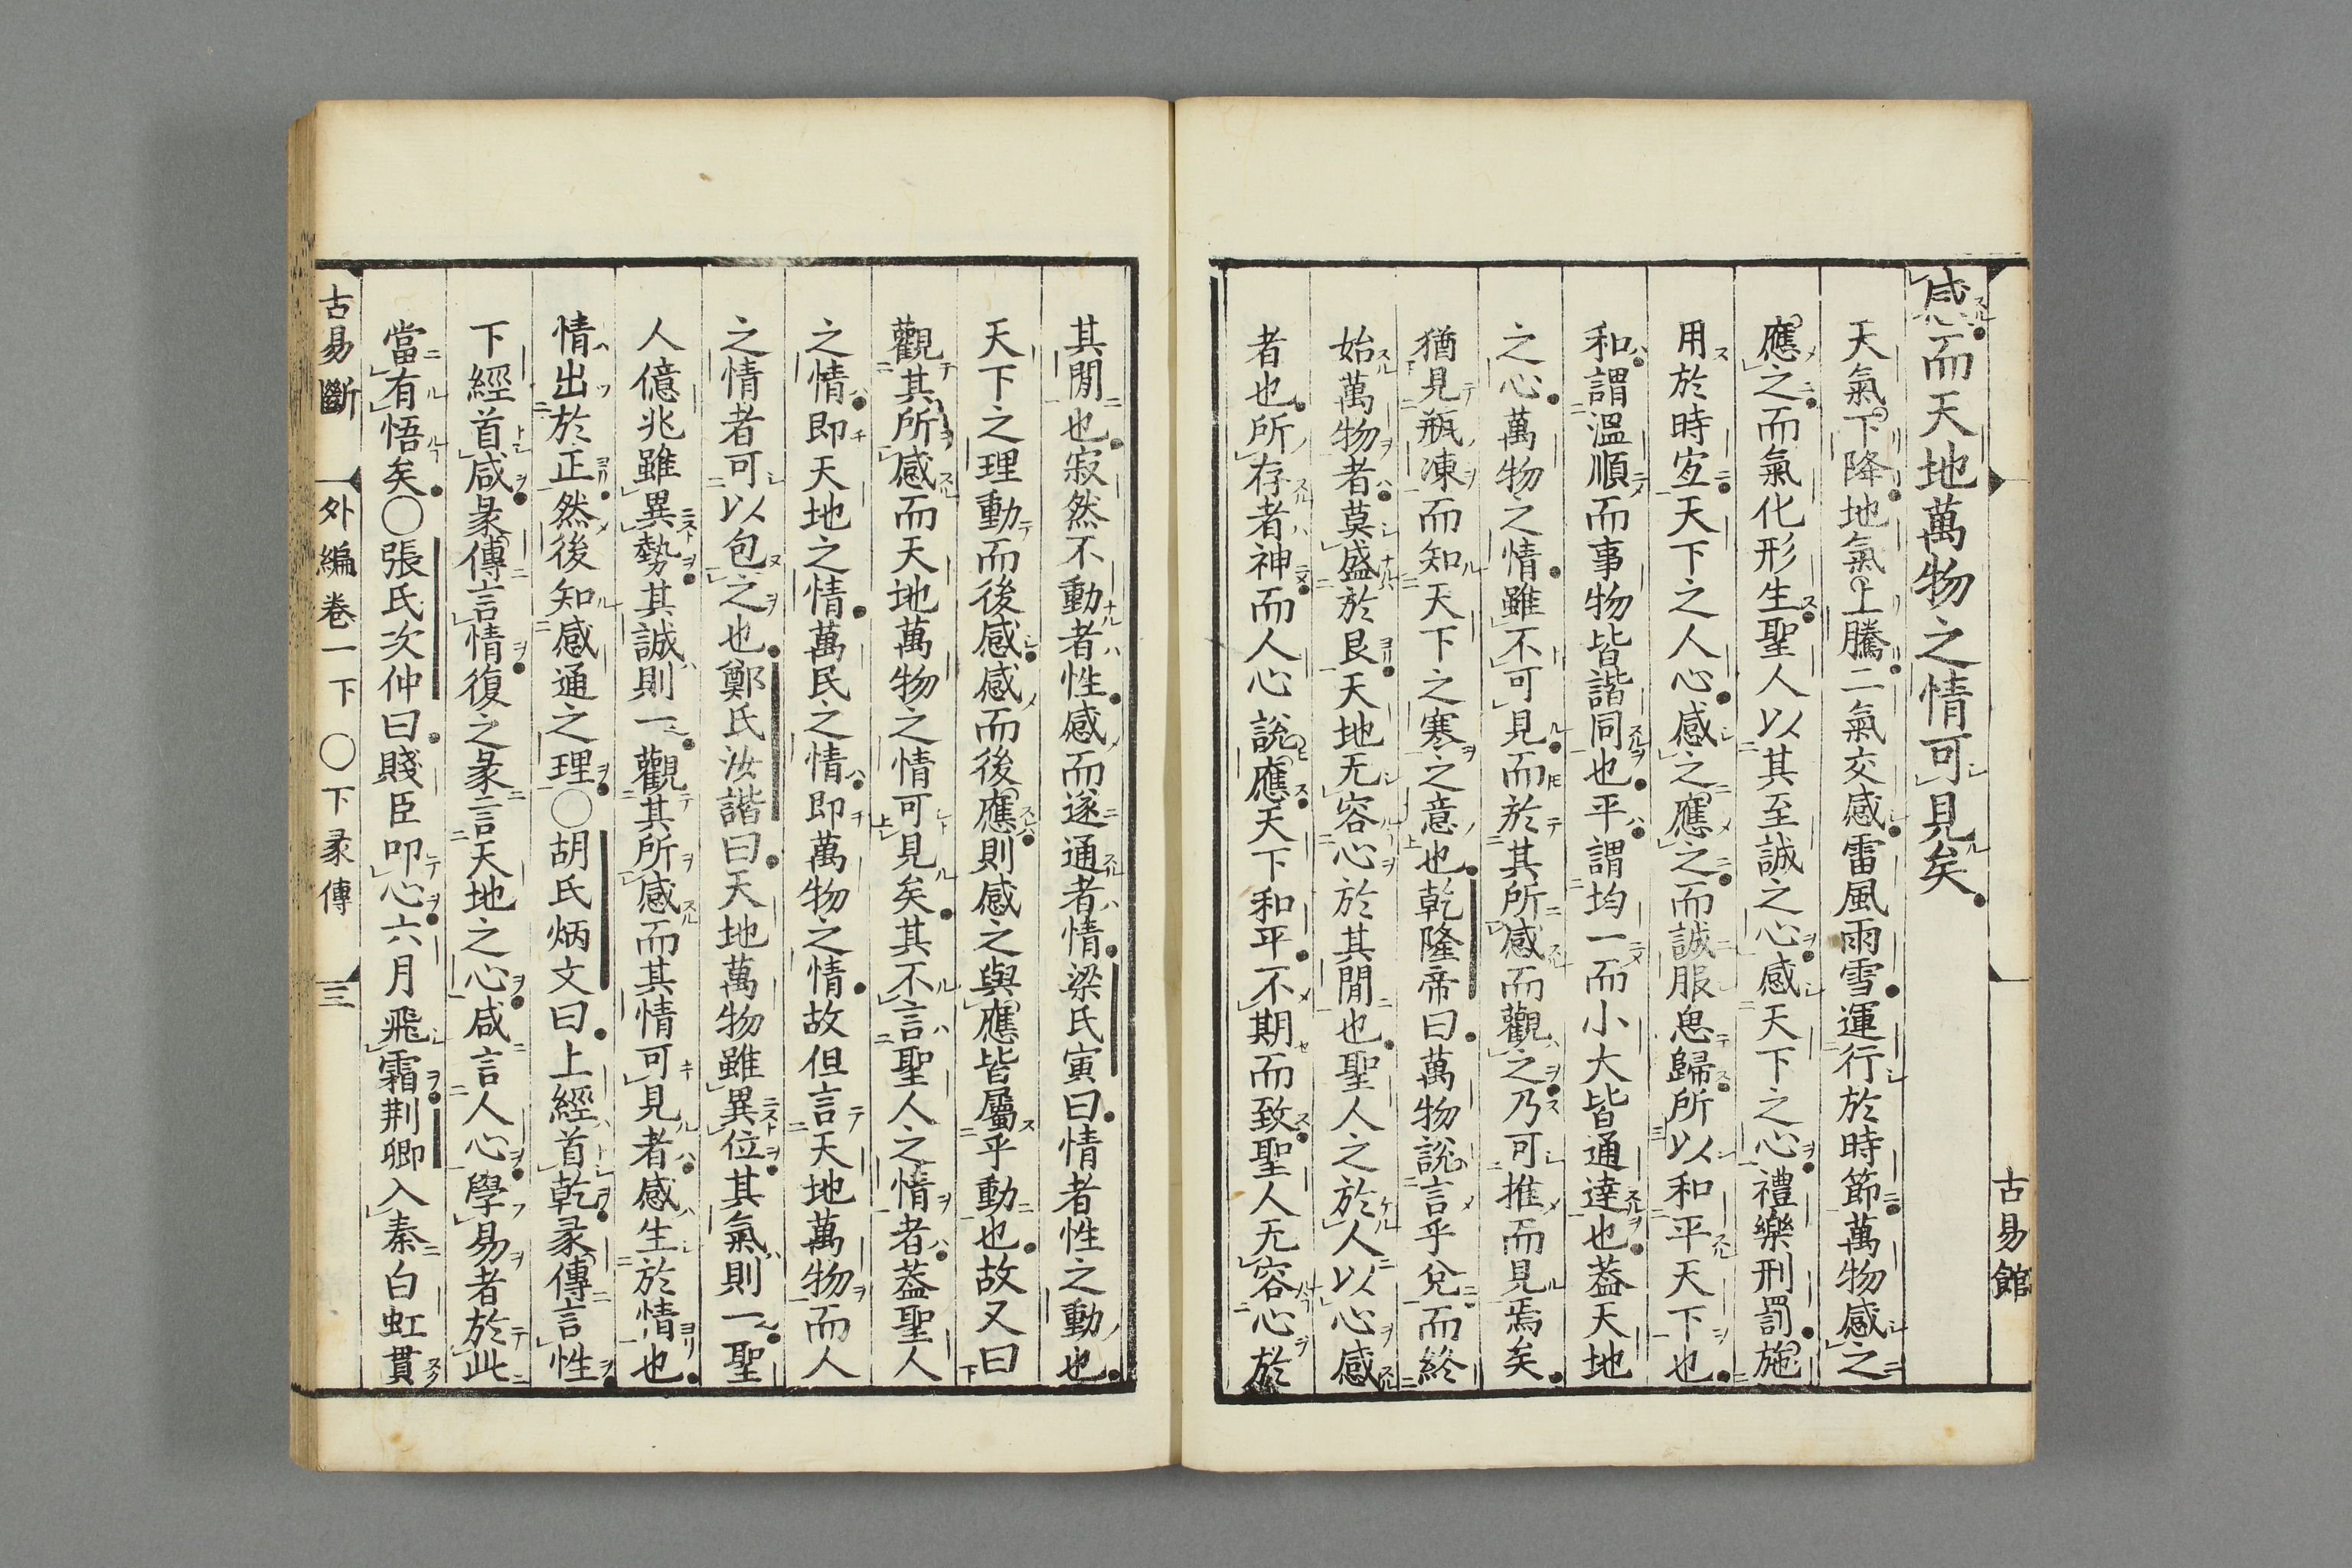 古易館
感而天地萬物之情可見矣
天氣下降地氣上騰二氣交感雷風雨雪運行於時節萬物感之
應之而氣化形生聖人以其至誠之心感天下之心禮樂刑罰施
用於時宐天下之人心感之應之而誠服恖歸所以和平天下也
和謂溫順而事物皆諧同也平謂均一而小大皆通達也葢天地
之心萬物之情雖不可見而於其所感而觀之乃可推而見焉矣
猶見瓶凍而知天下之寒之意也乾隆帝曰萬物說言乎兌而終
始萬物者莫盛於艮天地无容心於其閒也聖人之於人以心感
者也所存者神而人心說應天下和平不期而致聖人无容心於
其閒也寂然不動者性感而遂通者情梁氏寅曰情者性之動也
天下之理動而後感感而後應則感之與應皆屬乎動也故又曰
觀其所感而天地萬物之情可見矣其不言聖人之情者葢聖人
之情即天地之情萬民之情即萬物之情故但言天地萬物而人
之情者可以包之也鄭氏汝諧曰天地萬物雖異位其氣則一聖
人億兆雖異勢其誠則一觀其所感而其情可見者感生於情也
情出於正然後知感通之理○胡氏炳文曰上經首乾彖傳言性
下經首咸彖傳言情復之彖言天地之心咸言人心學易者於此
當有悟矣○張氏次仲曰賤臣叩心六月飛霜荆卿入秦白虹貫
古易斷 外編卷一下 ○下彖傳 三